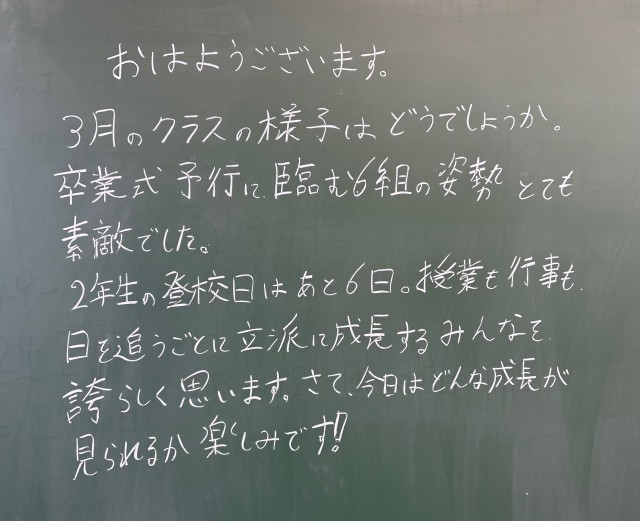 おはようございます。
3月のクラスの様子はどうでしょうか。
卒業式予行に臨む6組の姿勢とても
素敵でした。
2年生の登校日はあと6日。授業も行事も、
日を追うごとに立派に成長するみんなを、
誇らしく思います。さて、今日はどんな成長が
見られるか楽しみです!!